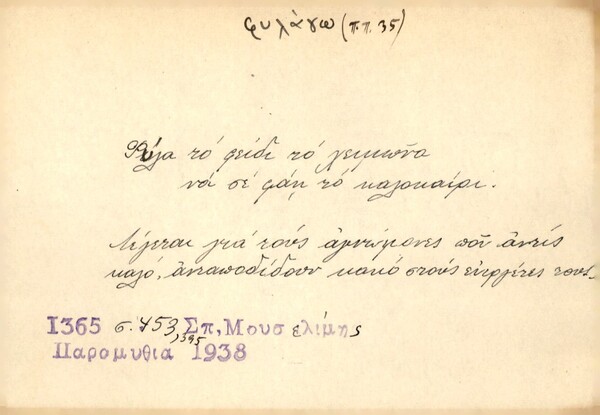 φυλάγω (π.π. 35)
Φύλα τό φείδι τό χειμῶνα
νά σέ φάῃ τό καλοκαίρι.
Λέγεται γιά τούς ἀγνώμονες ποῦ ἀντίς
καλό, ἀνταποδίδουν κακό στούς εὐεργέτες τους.
1365 σ. 453, 1395 Σπ, Μουσελίμης
Παρομυθια 1938